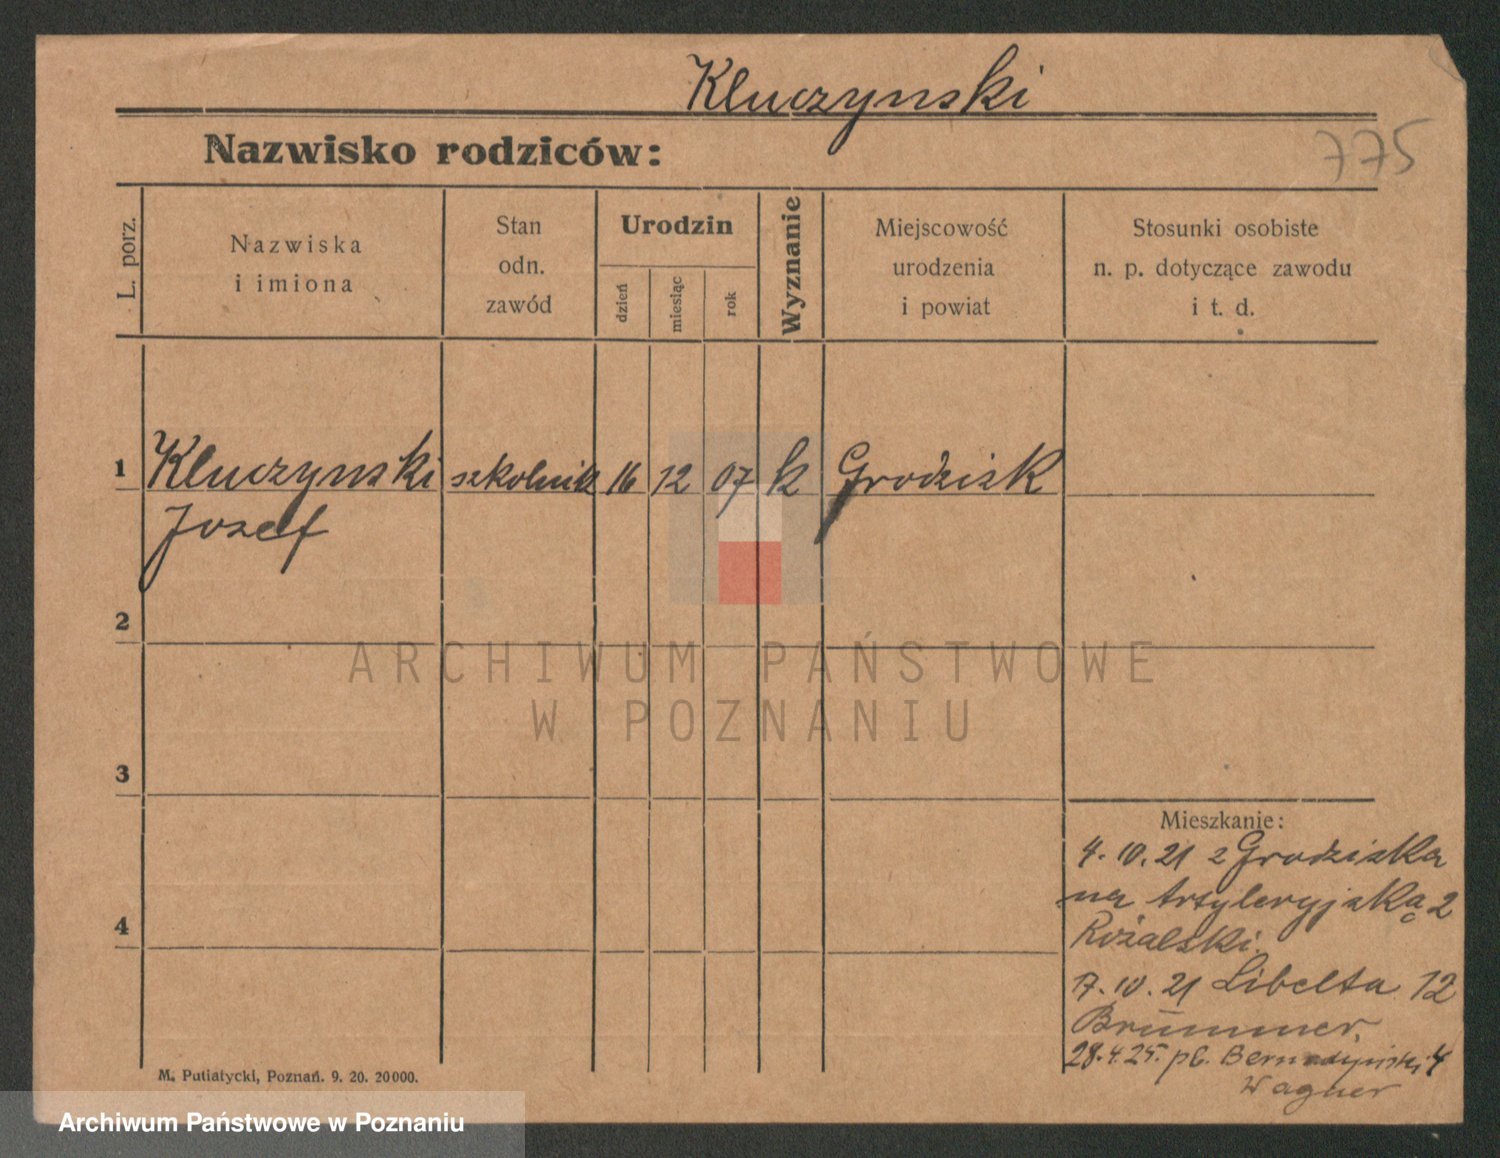 Kluczynski
775
Nazwisko rodziców:
L. porz.
Nazwiska
i imiona
Stan
odn.
zawód
Urodzin
dzień
miesiąc
rok
Wyznanie
Miejscowość
urodzenia
i powiat
Stosunki osobiste
n. p. dotyczące zawodu
i t. d.
1 Kluczynski szkolnik 16 12 07 k Grodzisk
Jozef
2
ARCHIWUM PAŃSTWOWE
W POZNANIU
3
Mieszkanie:
4. 10. 21 z Grodziska
na Artyleryjską 2
4
17. 10. 21 Libelta 12
Brümmer,
28. 4. 25. pl. Bernadyński 4
Wagner
M. Putiatycki, Poznań. 9. 20. 20000.
Archiwum Państwowe w Poznaniu